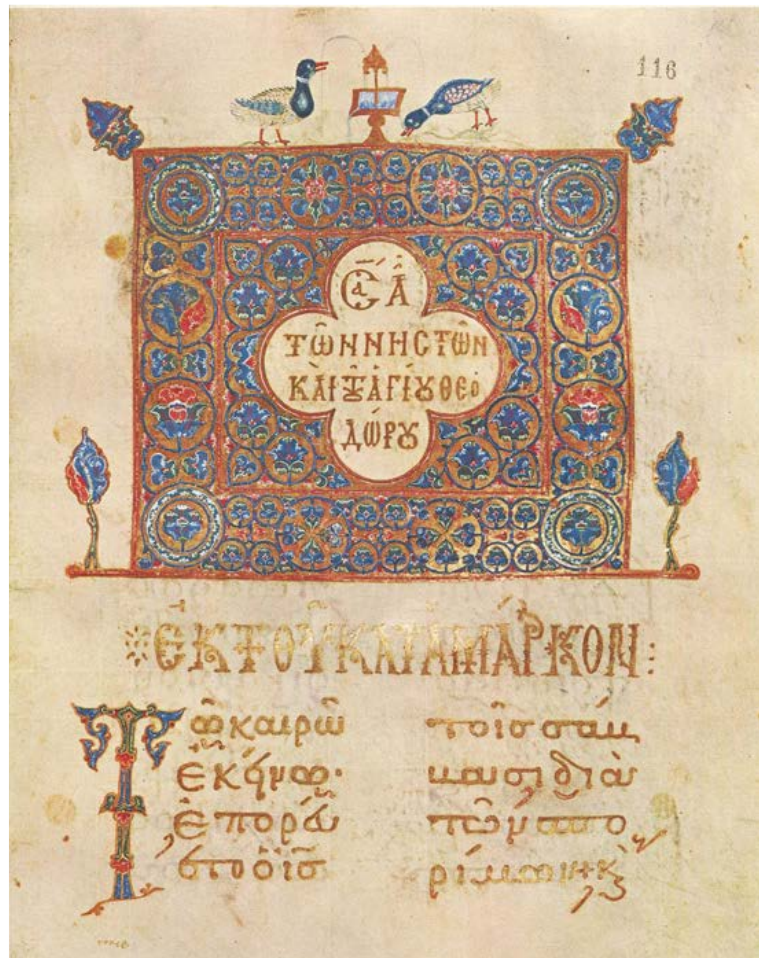 116
CΑ Ᾱ
ΤῶΝ ΝΗCΤῶΝ
ΚΑὶ ΤȢ ἉΓΊȢ ΘΕΟ
ΔώΡȢ
ἘΚ ΤΟῦ ΚΑΤΑ ΜΆΡΚΟΝ:
Τῶ καιρῶ
ἐκείνω·
ἐπορεύ
ετο ὁ ις
τοῖς σάβ
βασι διὰ
τῶν σπο
ρίμων· κ